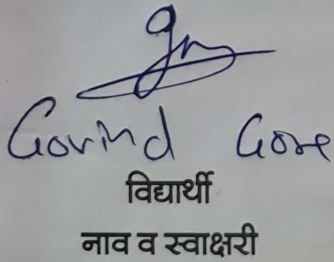 Govind Gore
विद्यार्थी
नाव व स्वाक्षरी